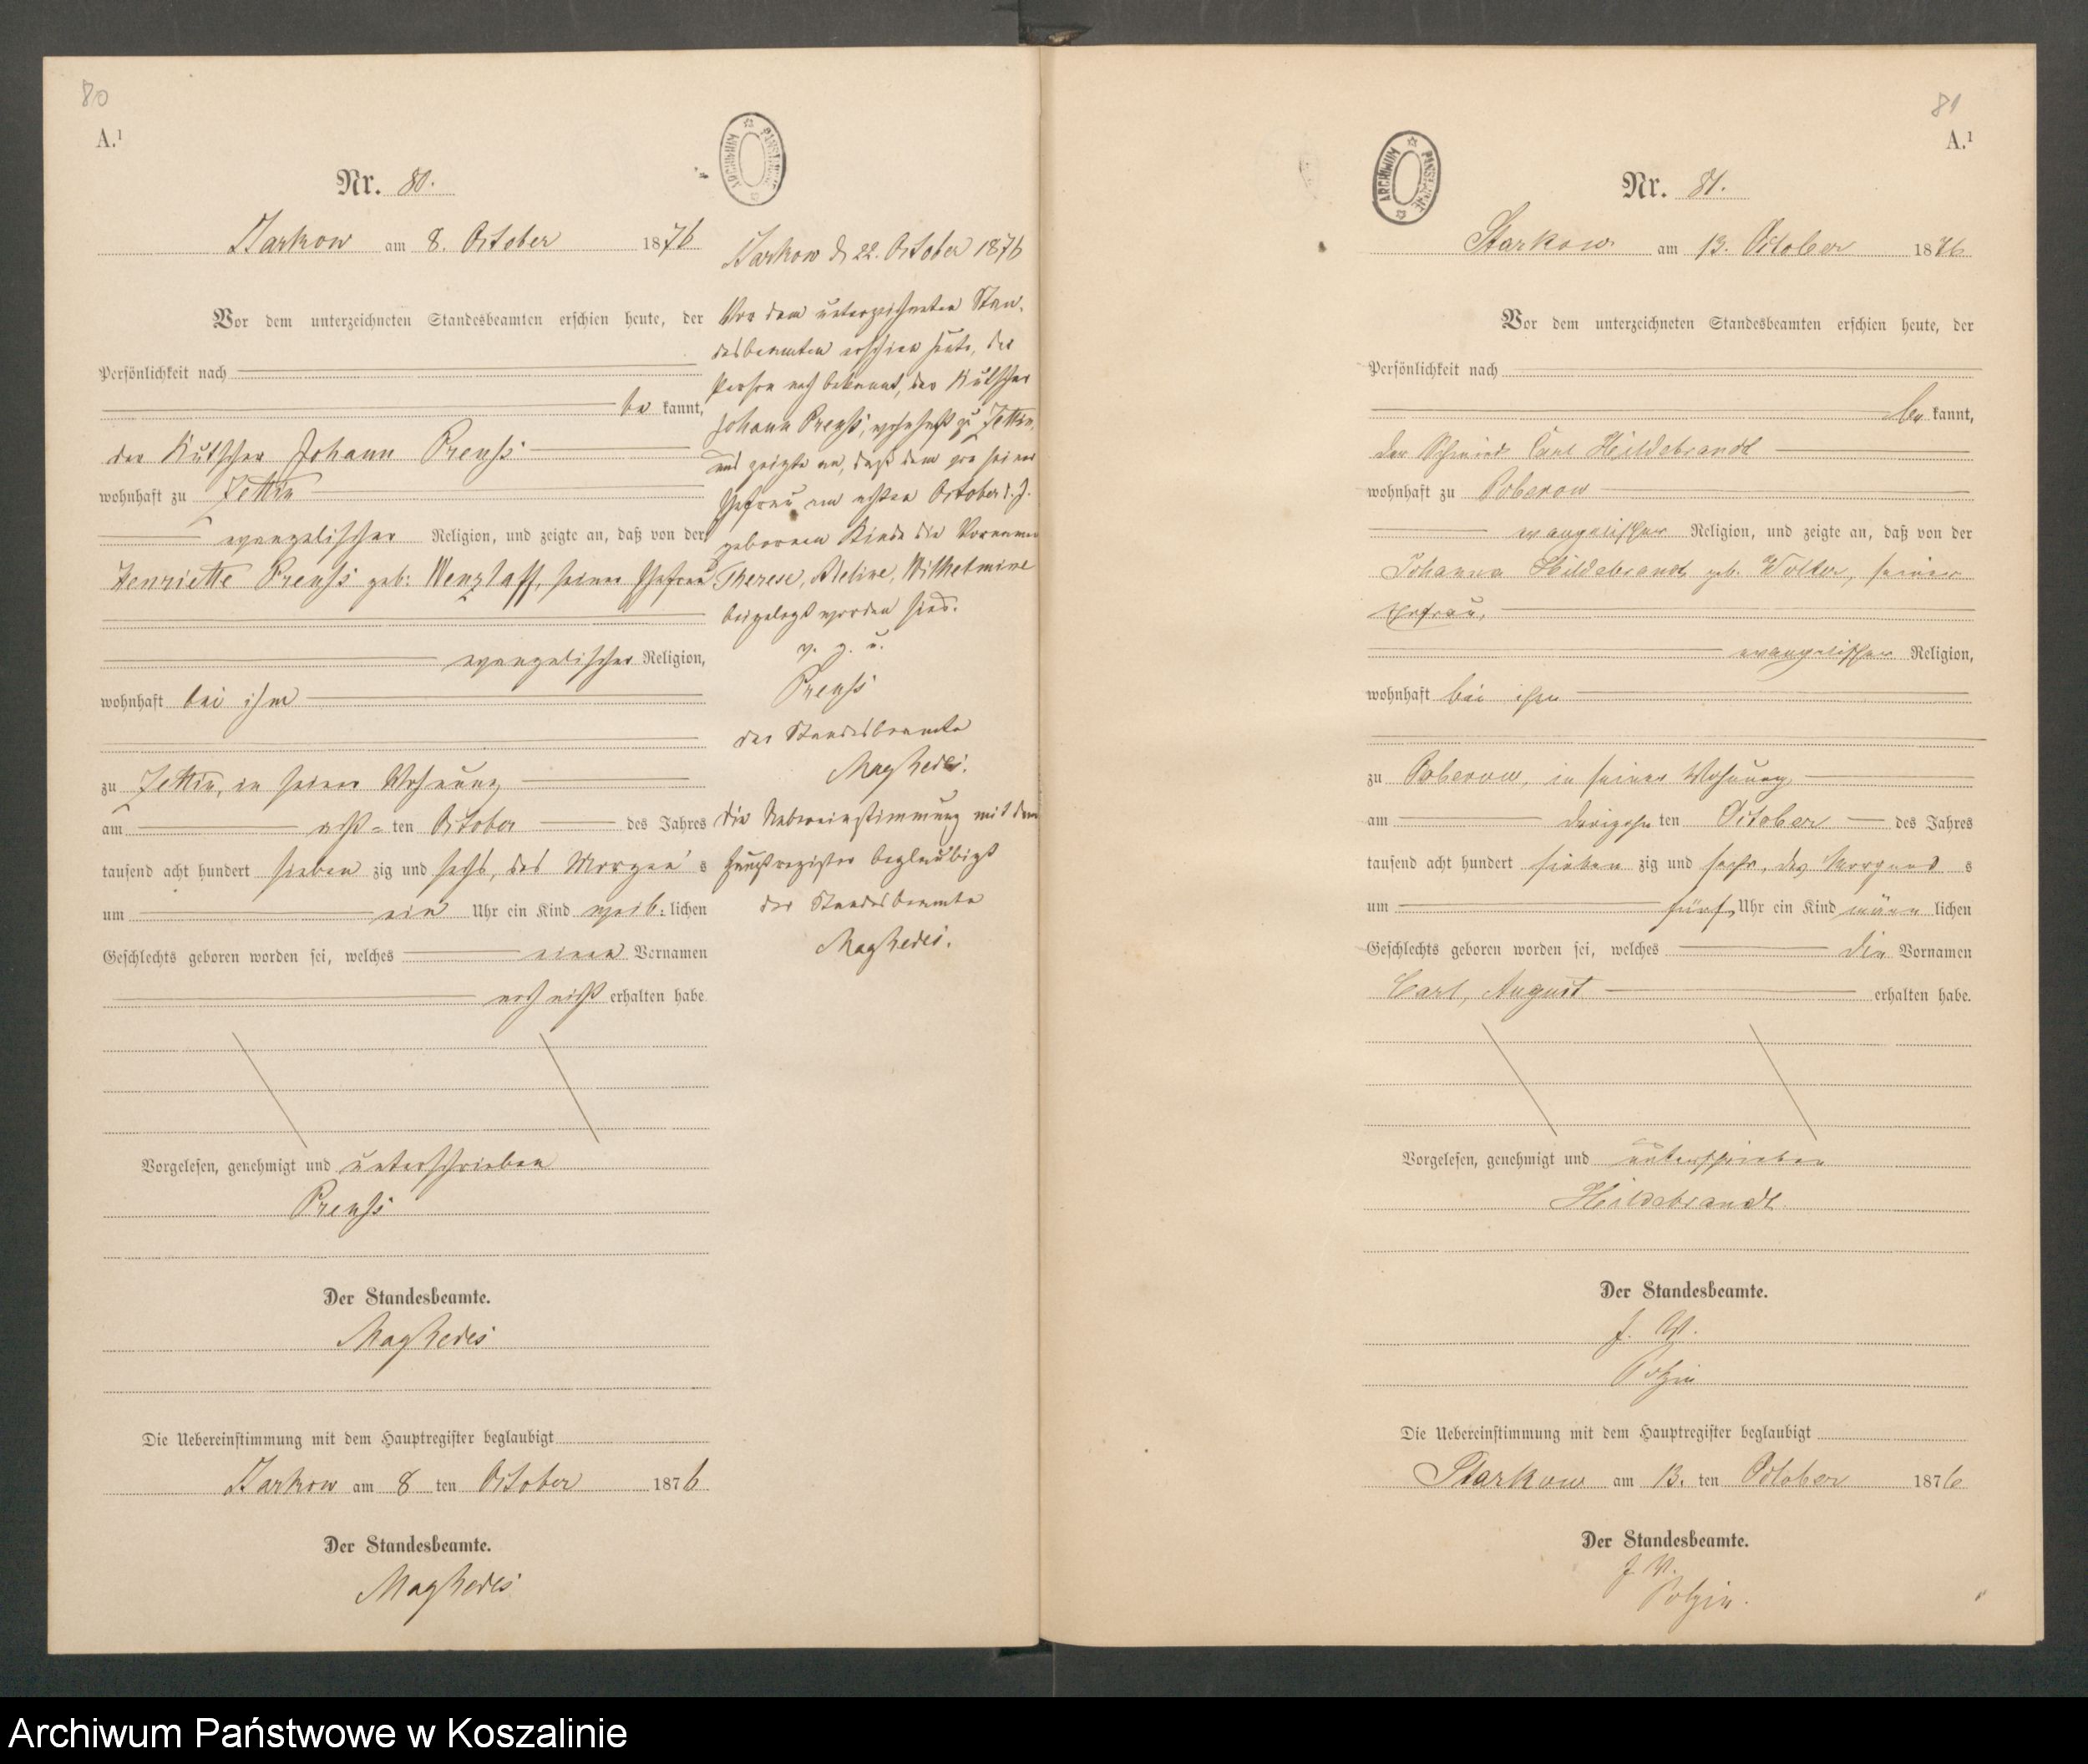 80
A.¹
ARCHIWUM PAŃSTWOWE
Nr. 80.
Starkow am 8. October 1876
Vor dem unterzeichneten Standesbeamten erschien heute, der
Persönlichkeit nach
be kannt,
der Kutscher Johann Preuß
wohnhaft zu Zettin
evangelischer Religion, und zeigte an, daß von der
Henriette Preuß geb: Wenzlaff, seiner Ehefrau
evangelischer Religion,
wohnhaft bei ihm
zu Zettin, in seiner Wohnung
am acht- ten October des Jahres
tausend acht hundert sieben zig und sechs, des Morgen s
um ein Uhr ein Kind weib: lichen
Geschlechts geboren worden sei, welches einen Vornamen
noch nicht erhalten habe
Vorgelesen, genehmigt und unterschrieben
Preuß
Der Standesbeamte.
Die Uebereinstimmung mit dem Hauptregister beglaubigt
Starkow am 8 ten October 1876
Der Standesbeamte.
Starkow d 22. October 1876
Vor dem unterzeichneten Stan-
desbeamten erschien heute, der
Person nach bekannt, der Kutscher
Johann Preuß, wohnhaft zu Zettin,
und zeigte an, daß dem von seiner
Ehefrau am achten October d. J.
geborenen Kinde die Vornamen
Therese, Aleline, Wilhelmine
beigelegt worden sind.
v. g. u.
Preuß
der Standesbeamte
die Uebereinstimmung mit dem
Hauptregister beglaubigt
der Standesbeamte
81
A.¹
ARCHIWUM PAŃSTWOWE
Nr. 81.
Starkow am 13. October 1876
Vor dem unterzeichneten Standesbeamten erschien heute, der
Persönlichkeit nach
be kannt,
der Schmied Carl Hildebrandt
wohnhaft zu Poberow
evangelischer Religion, und zeigte an, daß von der
Johanna Hildebrandt geb. Wolter, seiner
Ehefrau,
evangelischer Religion,
wohnhaft bei ihm
zu Poberow, in seiner Wohnung
am dreizehn ten October des Jahres
tausend acht hundert sieben zig und sechs, des Morgens s
um fünf Uhr ein Kind männ lichen
Geschlechts geboren worden sei, welches die Vornamen
Carl, August erhalten habe.
Vorgelesen, genehmigt und unterschrieben
Hildebrandt.
Der Standesbeamte.
J. V.
Polzin
Die Uebereinstimmung mit dem Hauptregister beglaubigt
Starkow am 13. ten October 1876
Der Standesbeamte.
J. V.
Polzin.
Archiwum Państwowe w Koszalinie